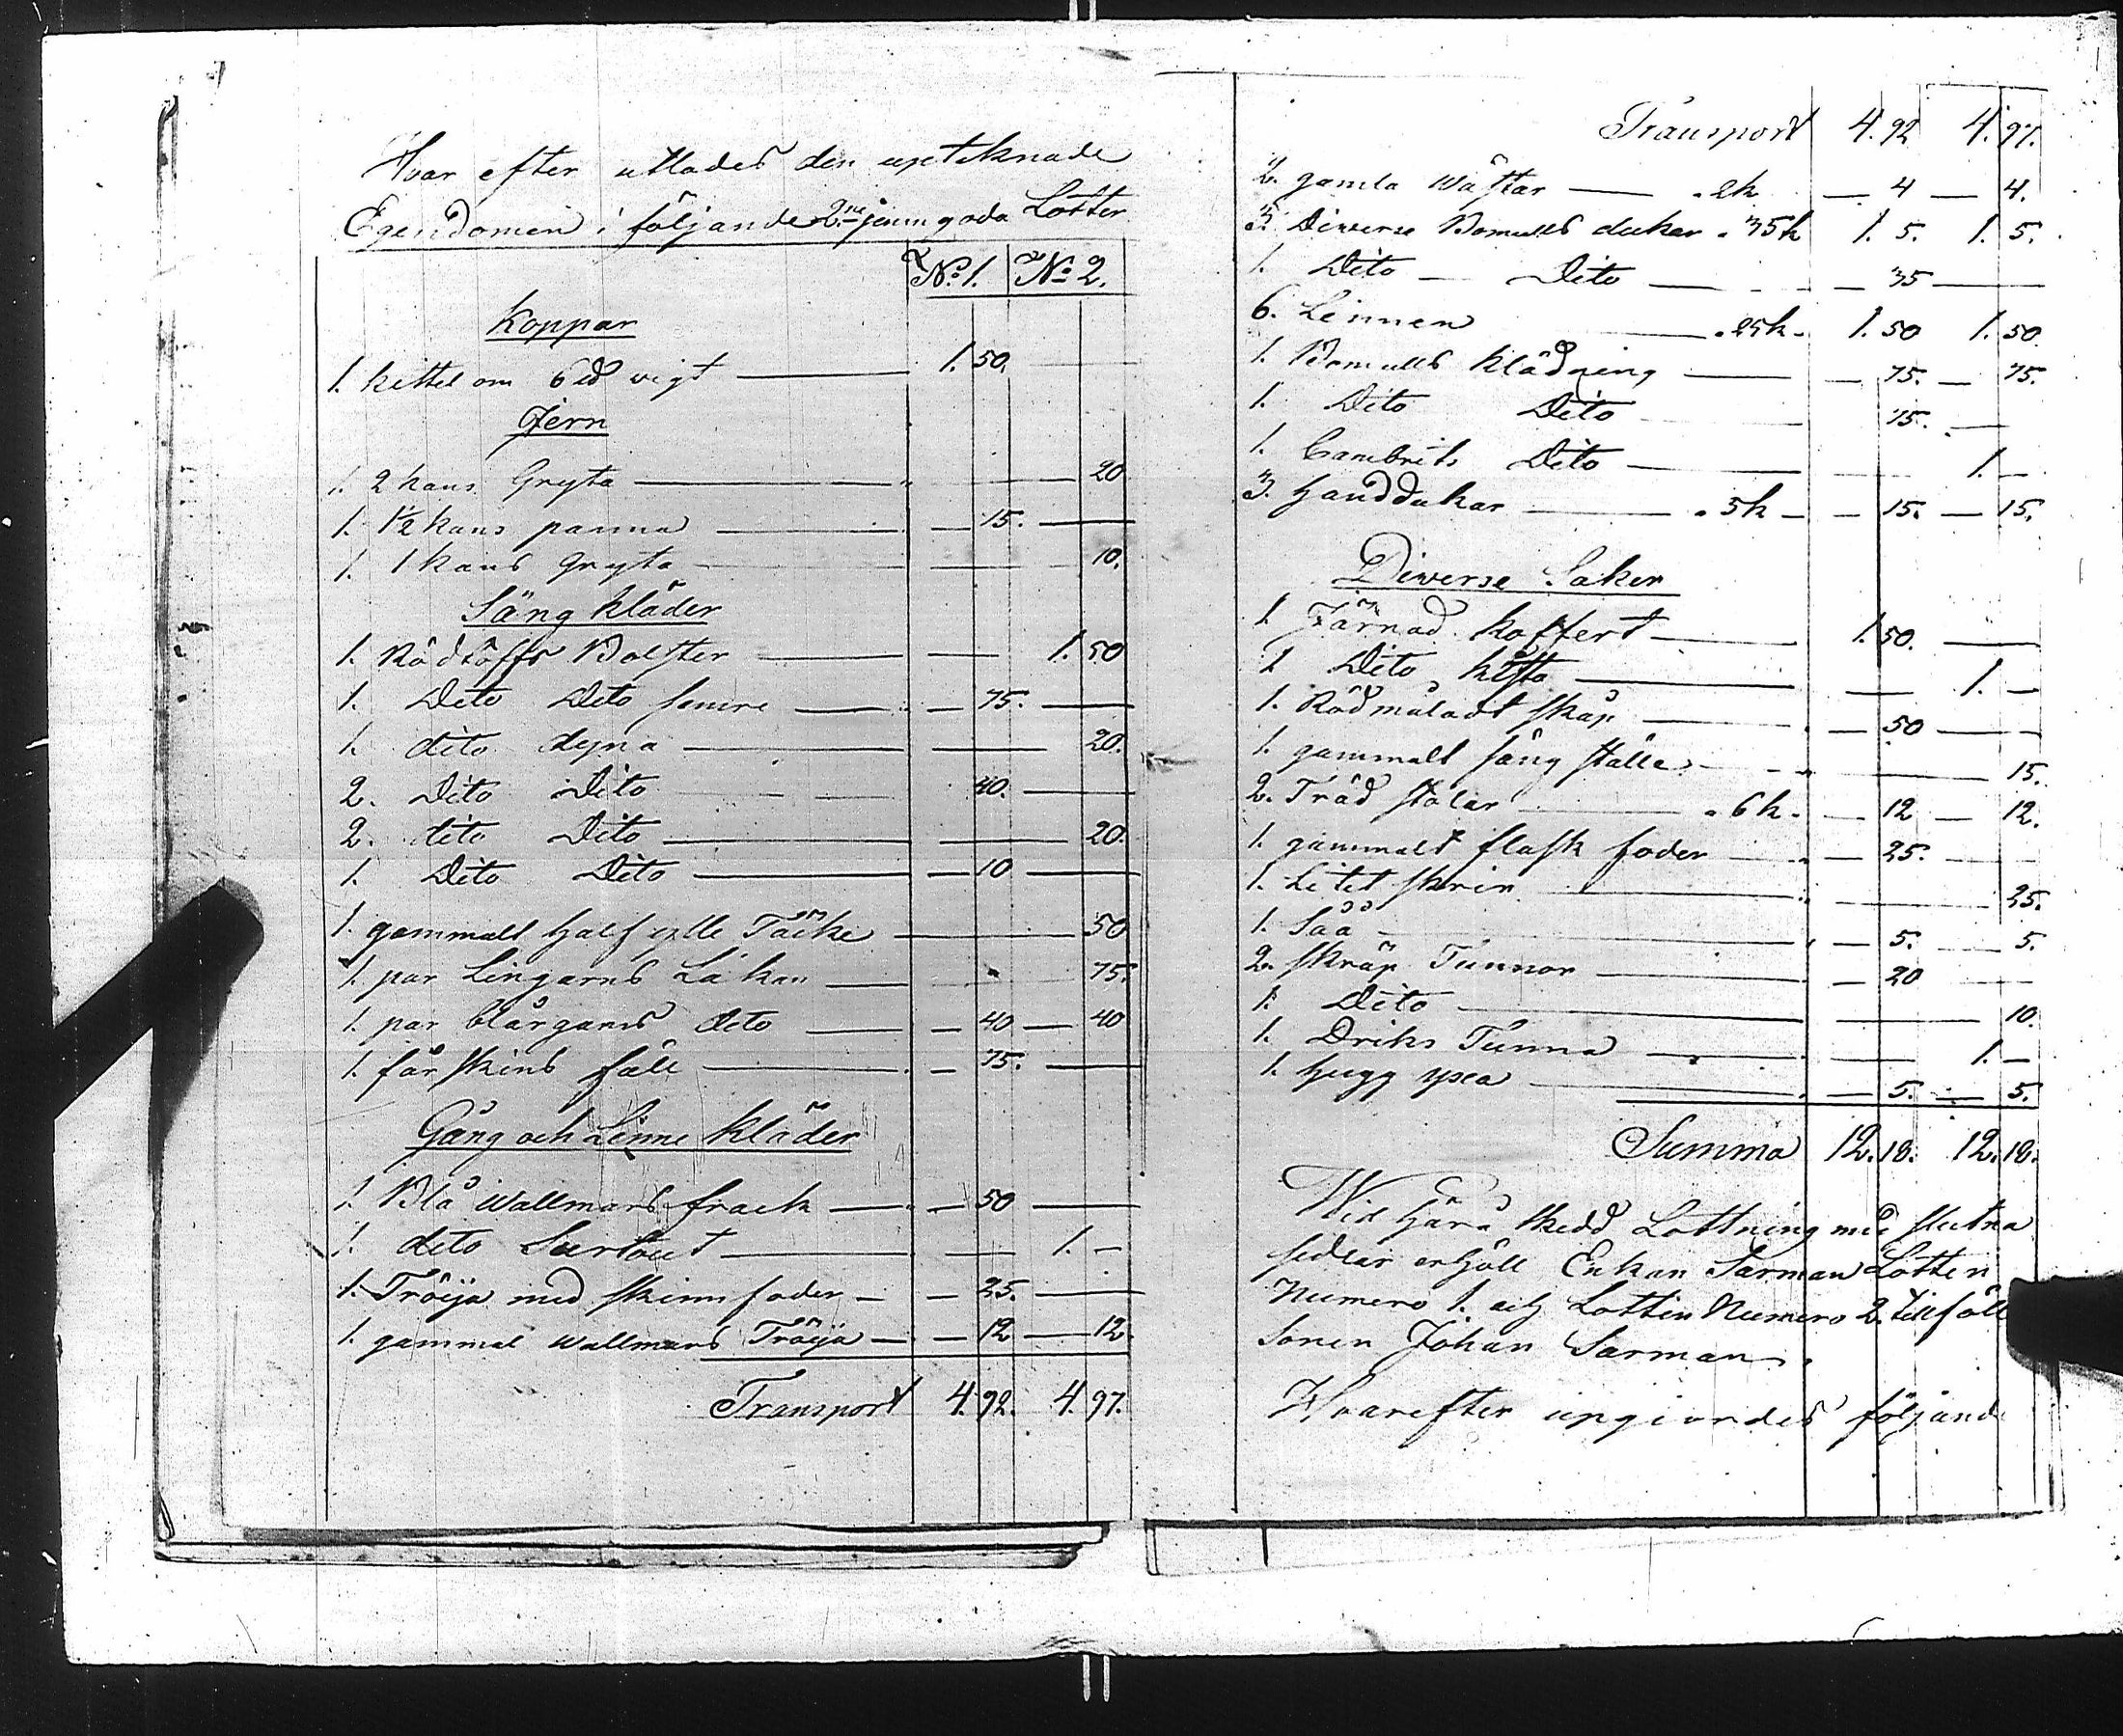 Hvar efter utlades den upteknade
Egendomen i följande 2ne jemngoda Lotter
No. 1. No. 2.
Koppar
1. kittel om 6 ℔ vigt 1. 50.
Jern
1. 2 kans Gryta 20
1. 1½ kans panna 15.
1. 1 kans Gryta 10.
Säng kläder
1. Rödtöffs Bolster 1. 50
1. Deto Deto semre 75.
1. dito dyna 20.
2. Dito Dito 40.
2. dito Dito 20.
1. Dito Dito 10
1. gammalt half ylle Täcke 50
1. par Lingarns Lakan 75.
1. par blårgarns deto 40 40
1. får skins fäll 75.
Gång och Linne kläder
1. Blå Wallmars frack 50
1. deto Surtout 1. –
1. Tröija med skinnfoder 25.
1. gammal wallmars Tröija 12 12
Transport 4. 92. 4. 97.
Transport 4. 92 4. 97.
2. gamla wästar . 2k 4 4.
3. Diverse Bomulls dukar . 35k 1. 5. 1. 5.
1. Dito Dito 35
6. Linnen . 25k. 1. 50 1. 50.
1. Bomulls klädning 75. 75.
1. Dito Dito 75.
1. Cambrits Dito 1. –
3. handdukar . 5k 15. 15.
Diverse Saker
1. Järnad koffert 1. 50.
1 Dito kista 1. –
1. Rödmåladt skåp 50
1. gammalt säng ställe 15.
2. Träd stolar . 6k. 12 12.
1. gammalt flask foder 25.
1. Litet skrin 25.
1. Såå 5. 5.
2. skräp Tunnor 20
1. Dito 10.
1. Driks Tunna 1. –
1. hugg yxa 5. 5.
Summa 12. 18. 12. 18.
Wid härå skedd Lottning med slutna
sedlar erhöll Enkan Sarman Lotten
Numero 1. och Lotten Numero 2. tillföll
Sonen Johan Sarman.
Hvarefter upgiordes följande